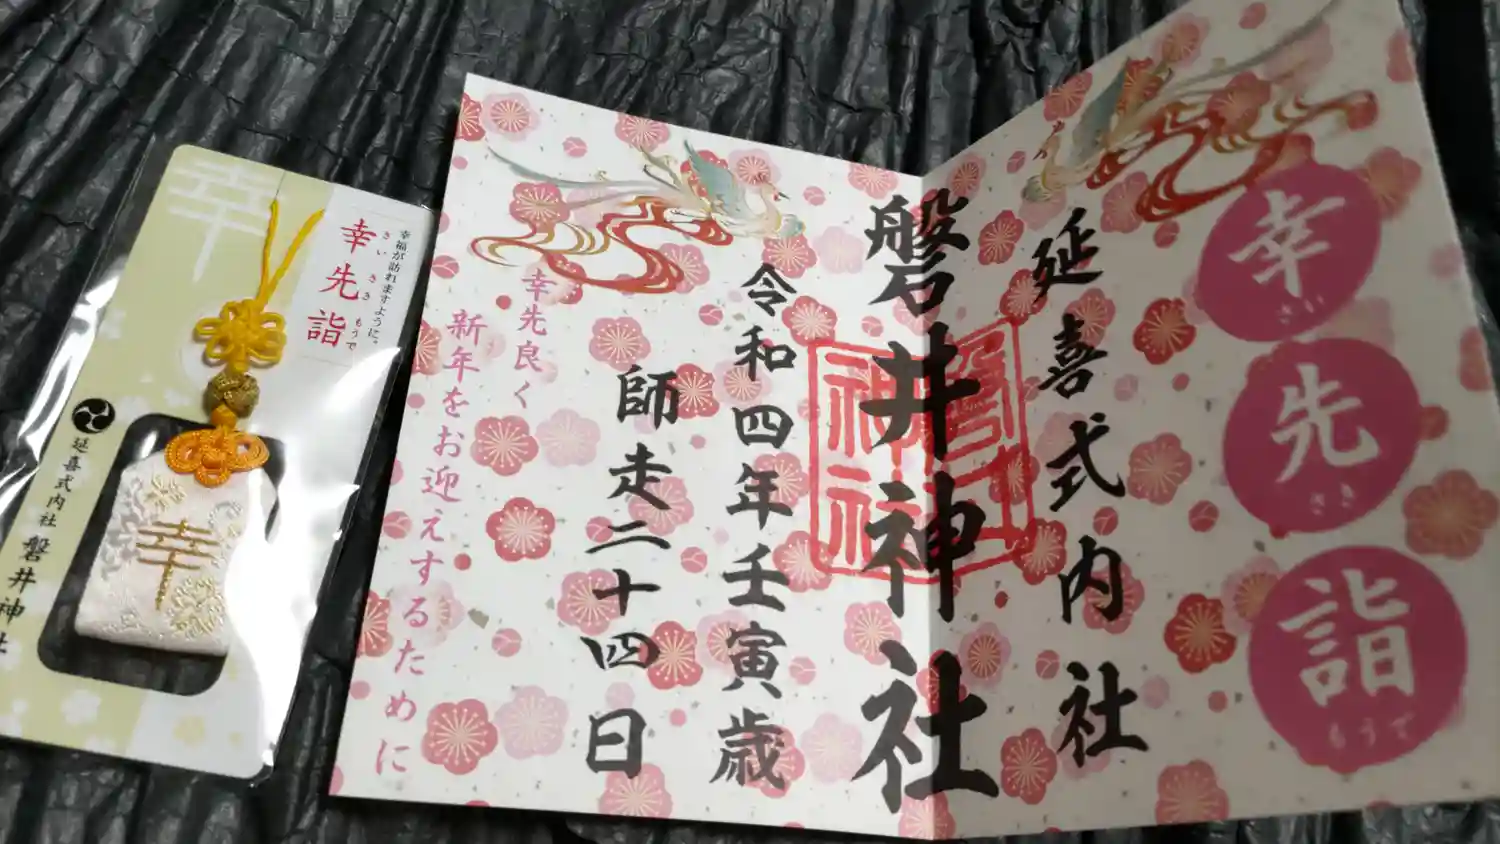 幸
幸先詣
さいさきもうで
幸福が訪れますように。
延喜式内社 磐井神社
幸
幸先詣
さいさきもうで
延喜式内社
磐井神社
磐井神社
令和四年壬寅歳
師走二十四日
幸先良く
新年をお迎えするために